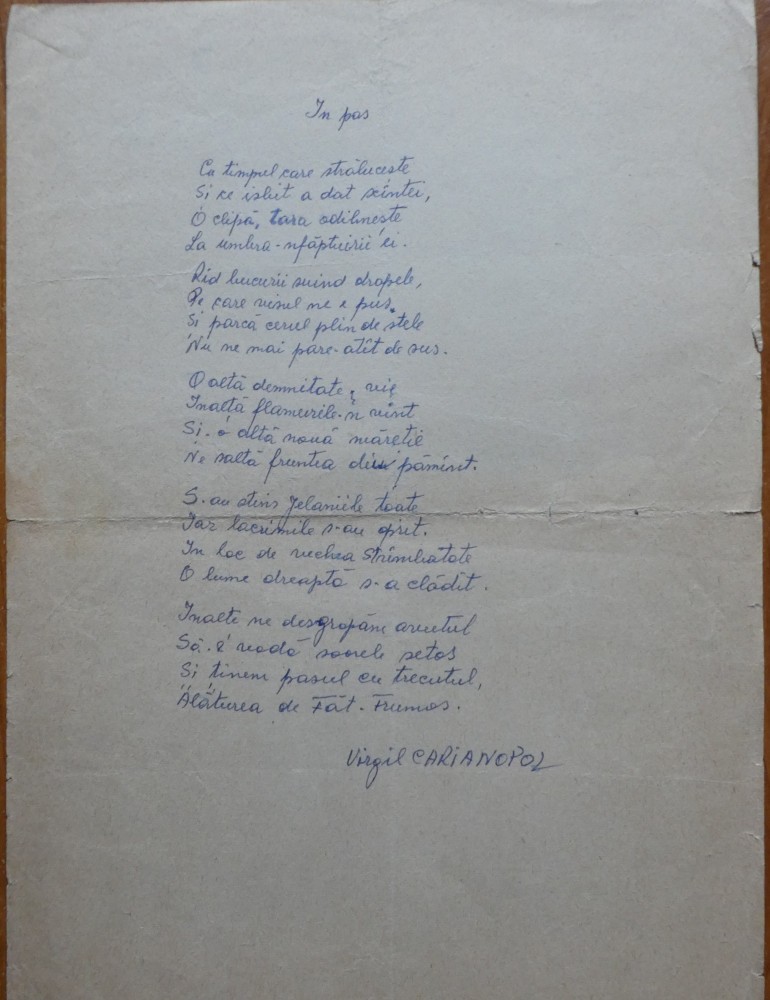 In pas
Ca timpul care străluceste
Si ce isbit a dat scîntei,
O clipă, tara odihneste
La umbra-nfăptuirii ei.
Rid bucurii suind drapele,
Pe care visul ne e pus.
Si parcă cerul plin de stele
Nu ne mai pare-atît de sus.
O altă demnitate, vie
Inaltă flamurile-n vint
Si-o altă nouă măretie
Ne saltă fruntea din pămint.
S-au stins jelaniile toate
Iar lacrimile s-au oprit.
In loc de vechea strimbatate
O lume dreaptă s-a clădit.
Inalte ne desgropăm avutul
Să-l vadă soarele setos
Si tinem pasul cu trecutul,
Alăturea de Făt-Frumos.
Virgil CARIANOPOL